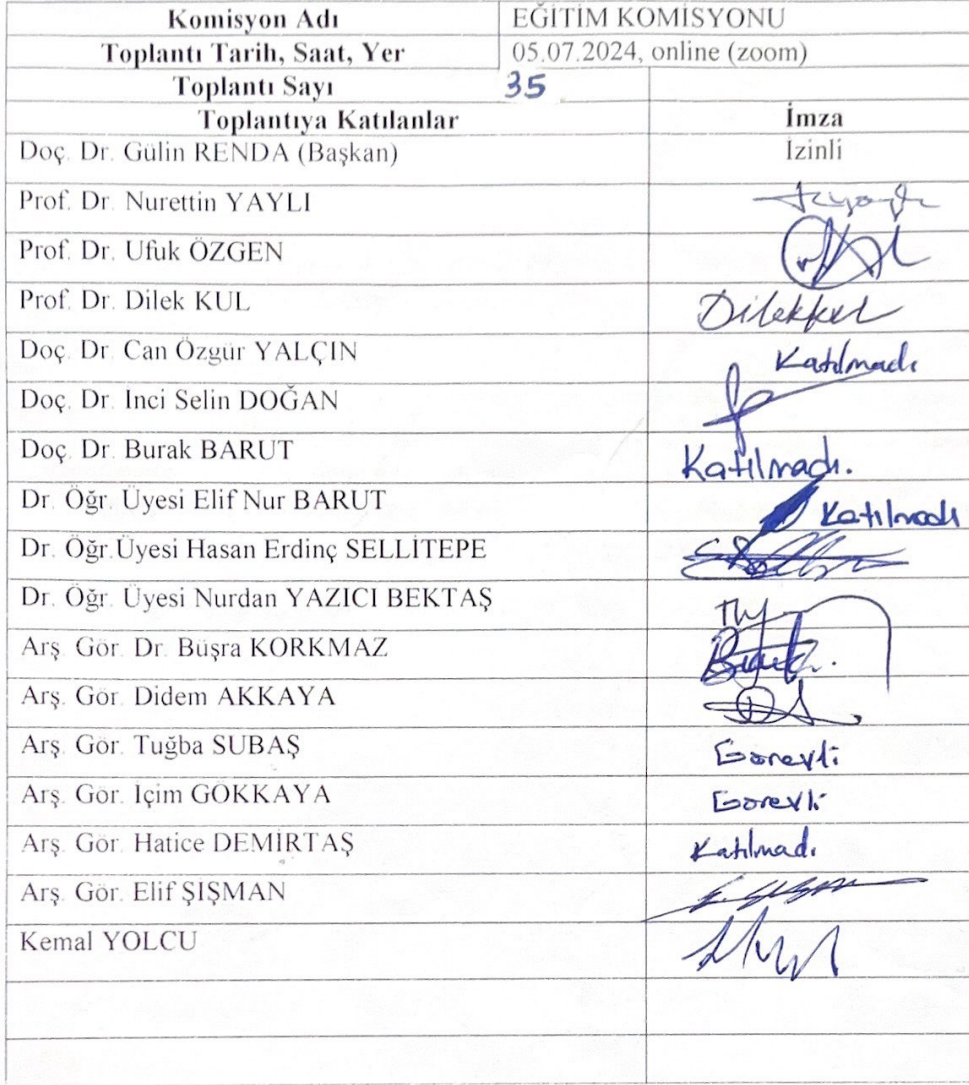 Komisyon Adı EĞİTİM KOMİSYONU
Toplantı Tarih, Saat, Yer 05.07.2024, online (zoom)
Toplantı Sayı 35
Toplantıya Katılanlar İmza
Doç. Dr. Gülin RENDA (Başkan) İzinli
Prof. Dr. Nurettin YAYLI
Prof. Dr. Ufuk ÖZGEN
Prof. Dr. Dilek KUL Dilekkul
Doç. Dr. Can Özgür YALÇIN Katılmadı
Doç. Dr. Inci Selin DOĞAN
Doç. Dr. Burak BARUT Katılmadı.
Dr. Öğr. Üyesi Elif Nur BARUT Katılmadı
Dr. Öğr.Üyesi Hasan Erdinç SELLİTEPE
Dr. Öğr. Üyesi Nurdan YAZICI BEKTAŞ
Arş. Gör. Dr. Büşra KORKMAZ
Arş. Gör. Didem AKKAYA
Arş. Gör. Tuğba SUBAŞ Görevli
Arş. Gör. İçim GÖKKAYA Görevli
Arş. Gör. Hatice DEMİRTAŞ Katılmadı
Arş. Gör. Elif ŞIŞMAN
Kemal YOLCU